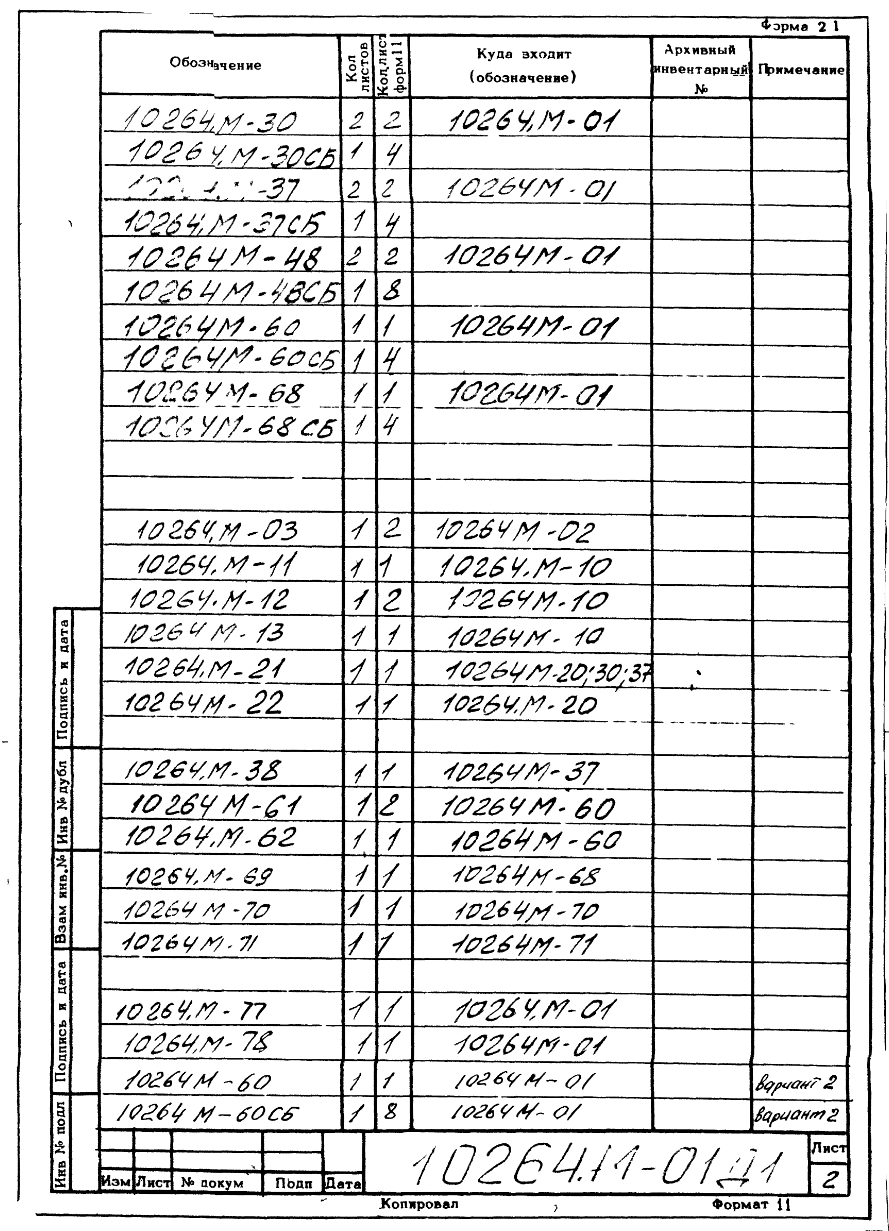 Форма 21
Обозначение Кол листов Кол.лист форм11 Куда входит (обозначение) Архивный инвентарный № Примечание
10264.М-30 2 2 10264.М-01
10264.М-30СБ 1 4
-37 2 2 10264М-01
10264.М-37СБ 1 4
10264М-48 2 2 10264М-01
10264М-48СБ 1 8
10264М-60 1 1 10264М-01
10264М-60СБ 1 4
10264М-68 1 1 10264М-01
10264М-68СБ 1 4
10264.М-03 1 2 10264М-02
10264.М-11 1 1 10264.М-10
10264.М-12 1 2 10264М-10
10264М-13 1 1 10264М-10
10264.М-21 1 1 10264М-20;30;37
10264М-22 1 1 10264.М-20
10264.М-38 1 1 10264М-37
10264М-61 1 2 10264М-60
10264.М-62 1 1 10264М-60
10264.М-69 1 1 10264М-68
10264М-70 1 1 10264М-70
10264М-71 1 1 10264М-71
10264.М-77 1 1 10264.М-01
10264.М-78 1 1 10264М-01
10264М-60 1 1 10264М-01 вариант 2
10264М-60СБ 1 8 10264М-01 вариант 2
Подпись и дата
Инв № дубл
Взам инв.№
Подпись и дата
Инв № подл
Изм Лист № докум Подп Дата
10264.М-01Д1
Лист
2
Копировал Формат 11